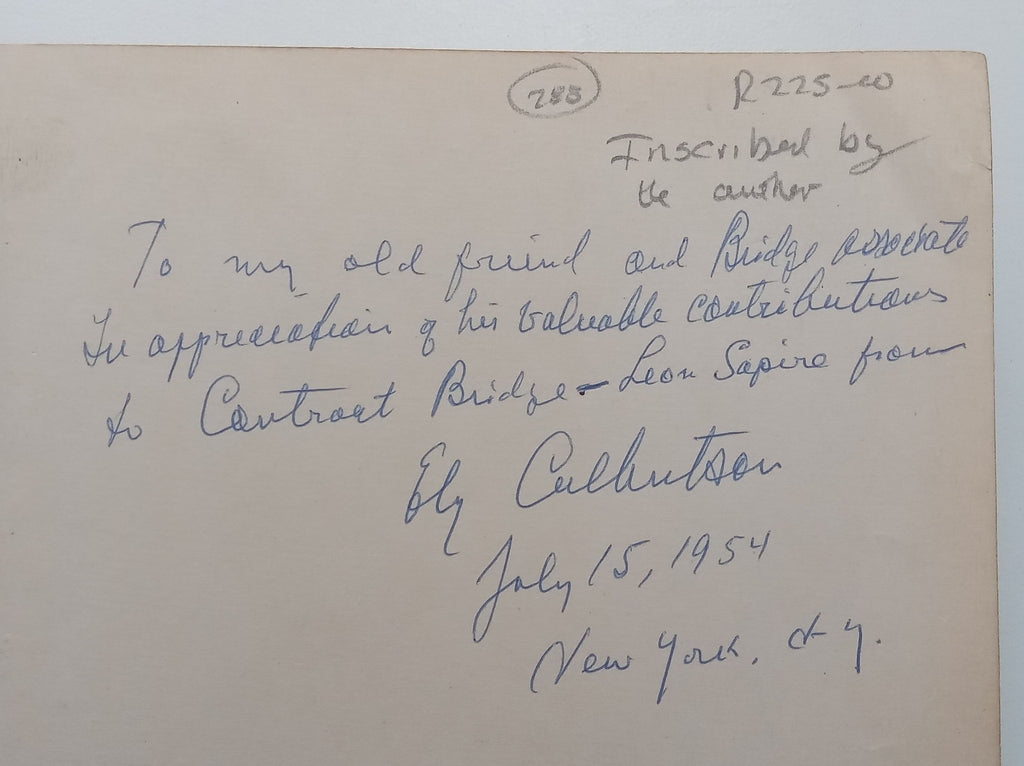 288
R225-00
Inscribed by
the author
To my old friend and Bridge associate
In appreciation of his valuable contributions
to Contract Bridge - Leon Sapire from
Ely Culbertson
July 15, 1954
New York, N.Y.